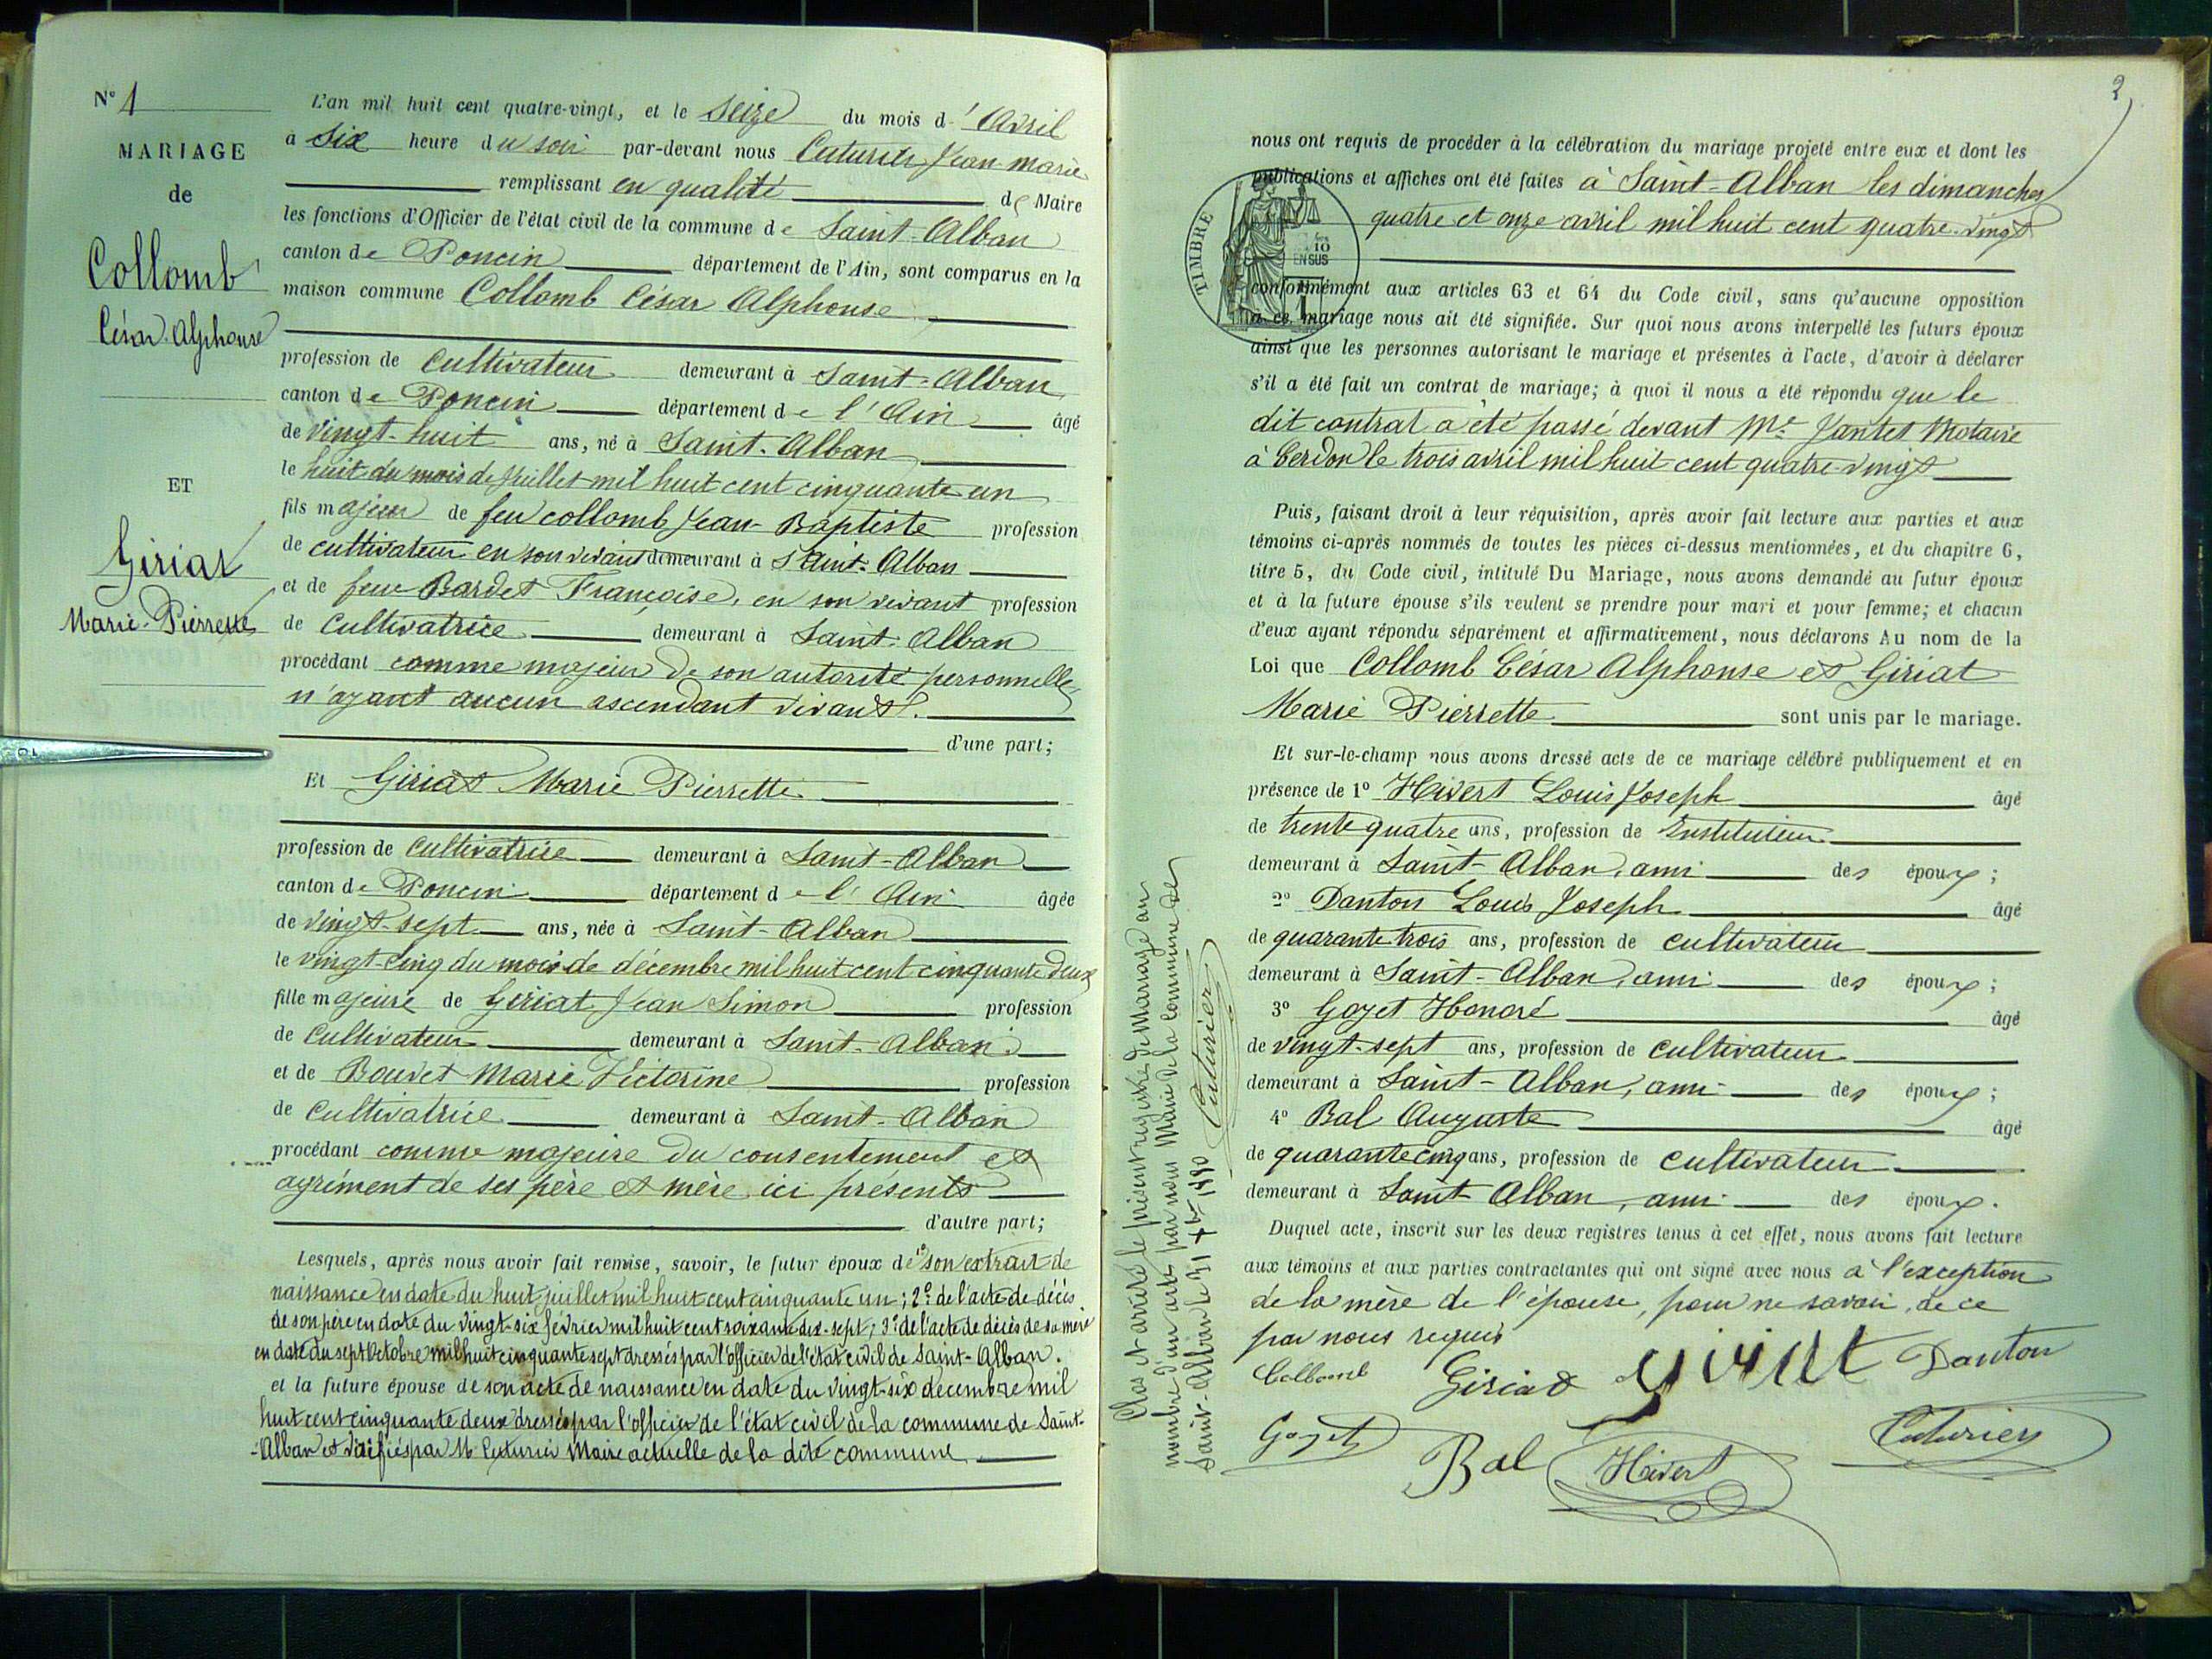 N° 1
MARIAGE
de
Collomb
César Alphonse
ET
Giriat
Marie Pierrette
L'an mil huit cent quatre-vingt, et le Seize du mois d'Avril
à Six heure du soir par-devant nous Cuturier Jean-marie
remplissant en qualité de Maire
les fonctions d'Officier de l'état civil de la commune de Saint-Alban
canton de Poncin département de l'Ain, sont comparus en la
maison commune Collomb César Alphonse
profession de Cultivateur demeurant à Saint-Alban
canton de Poncin département de l'Ain âgé
de vingt-huit ans, né à Saint-Alban
le huit du mois de Juillet mil huit cent cinquante un
fils majeur de feu collomb Jean-Baptiste profession
de cultivateur en son vivant demeurant à Saint-Alban
et de feue Bardet Françoise, en son vivant profession
de Cultivatrice demeurant à Saint-Alban
procédant comme majeur de son autorité personnelle
n'ayant aucun ascendant vivant.
d'une part;
Et Giriat Marie Pierrette
profession de Cultivatrice demeurant à Saint-Alban
canton de Poncin département de l'Ain âgée
de vingt-sept ans, née à Saint-Alban
le vingt-cinq du mois de décembre mil huit cent cinquante deux
fille majeure de Giriat Jean Simon profession
de Cultivateur demeurant à Saint-Alban
et de Bouvet Marie Victorine profession
de Cultivatrice demeurant à Saint-Alban
procédant comme majeure du consentement et
agrément de ses père et mère ici présents
d'autre part;
Lesquels, après nous avoir fait remise, savoir, le futur époux de 1° son extrait de
naissance en date du huit juillet mil huit cent cinquante un; 2° de l'acte de décès
de son père en date du vingt-six février mil huit cent soixante dix-sept; 3° de l'acte de décès de sa mère
en date du sept Octobre mil huit cinquante sept dressés par l'officier de l'état civil de Saint-Alban.
et la future épouse de son acte de naissance en date du vingt-six decembre mil
huit cent cinquante deux dressés par l'officier de l'état civil de la commune de Saint-
-Alban et vérifiés par M. Cuturier Maire actuelle de la dite commune
2
nous ont requis de procéder à la célébration du mariage projeté entre eux et dont les
publications et affiches ont été faites à Saint-Alban les dimanches
quatre et onze avril mil huit cent quatre-vingt
TIMBRE
10
EN SUS
conformément aux articles 63 et 64 du Code civil, sans qu'aucune opposition
à ce mariage nous ait été signifiée. Sur quoi nous avons interpellé les futurs époux
ainsi que les personnes autorisant le mariage et présentes à l'acte, d'avoir à déclarer
s'il a été fait un contrat de mariage; à quoi il nous a été répondu que le
dit contrat a été passé devant Me Jantet Notaire
à Cerdon le trois avril mil huit cent quatre-vingt
Puis, faisant droit à leur réquisition, après avoir fait lecture aux parties et aux
témoins ci-après nommés de toutes les pièces ci-dessus mentionnées, et du chapitre 6,
titre 5, du Code civil, intitulé Du Mariage, nous avons demandé au futur époux
et à la future épouse s'ils veulent se prendre pour mari et pour femme; et chacun
d'eux ayant répondu séparément et affirmativement, nous déclarons Au nom de la
Loi que Collomb César Alphonse et Giriat
Marie Pierrette sont unis par le mariage.
Et sur-le-champ nous avons dressé acte de ce mariage célébré publiquement et en
présence de 1° Hivert Louis Joseph âgé
de trente quatre ans, profession de Instituteur
demeurant à Saint-Alban, ami des époux;
2° Danton Louis Joseph âgé
de quarante trois ans, profession de cultivateur
demeurant à Saint-Alban, ami des époux;
3° Goyet Honoré âgé
de vingt-sept ans, profession de cultivateur
demeurant à Saint-Alban, ami des époux;
4° Bal Auguste âgé
de quarante cinq ans, profession de cultivateur
demeurant à Saint-Alban, ami des époux.
Duquel acte, inscrit sur les deux registres tenus à cet effet, nous avons fait lecture
aux témoins et aux parties contractantes qui ont signé avec nous à l'exception
de la mère de l'épouse, pour ne savoir, de ce
par nous requis
Collomb Giriat giriat Danton
Goyet Bal Hivert Cuturier
Clos et arrêté le présent registre de Mariage au
nombre d'un acte par nous Maire de la Commune de
Saint-Alban le 31 Xbre 1880 Cuturier